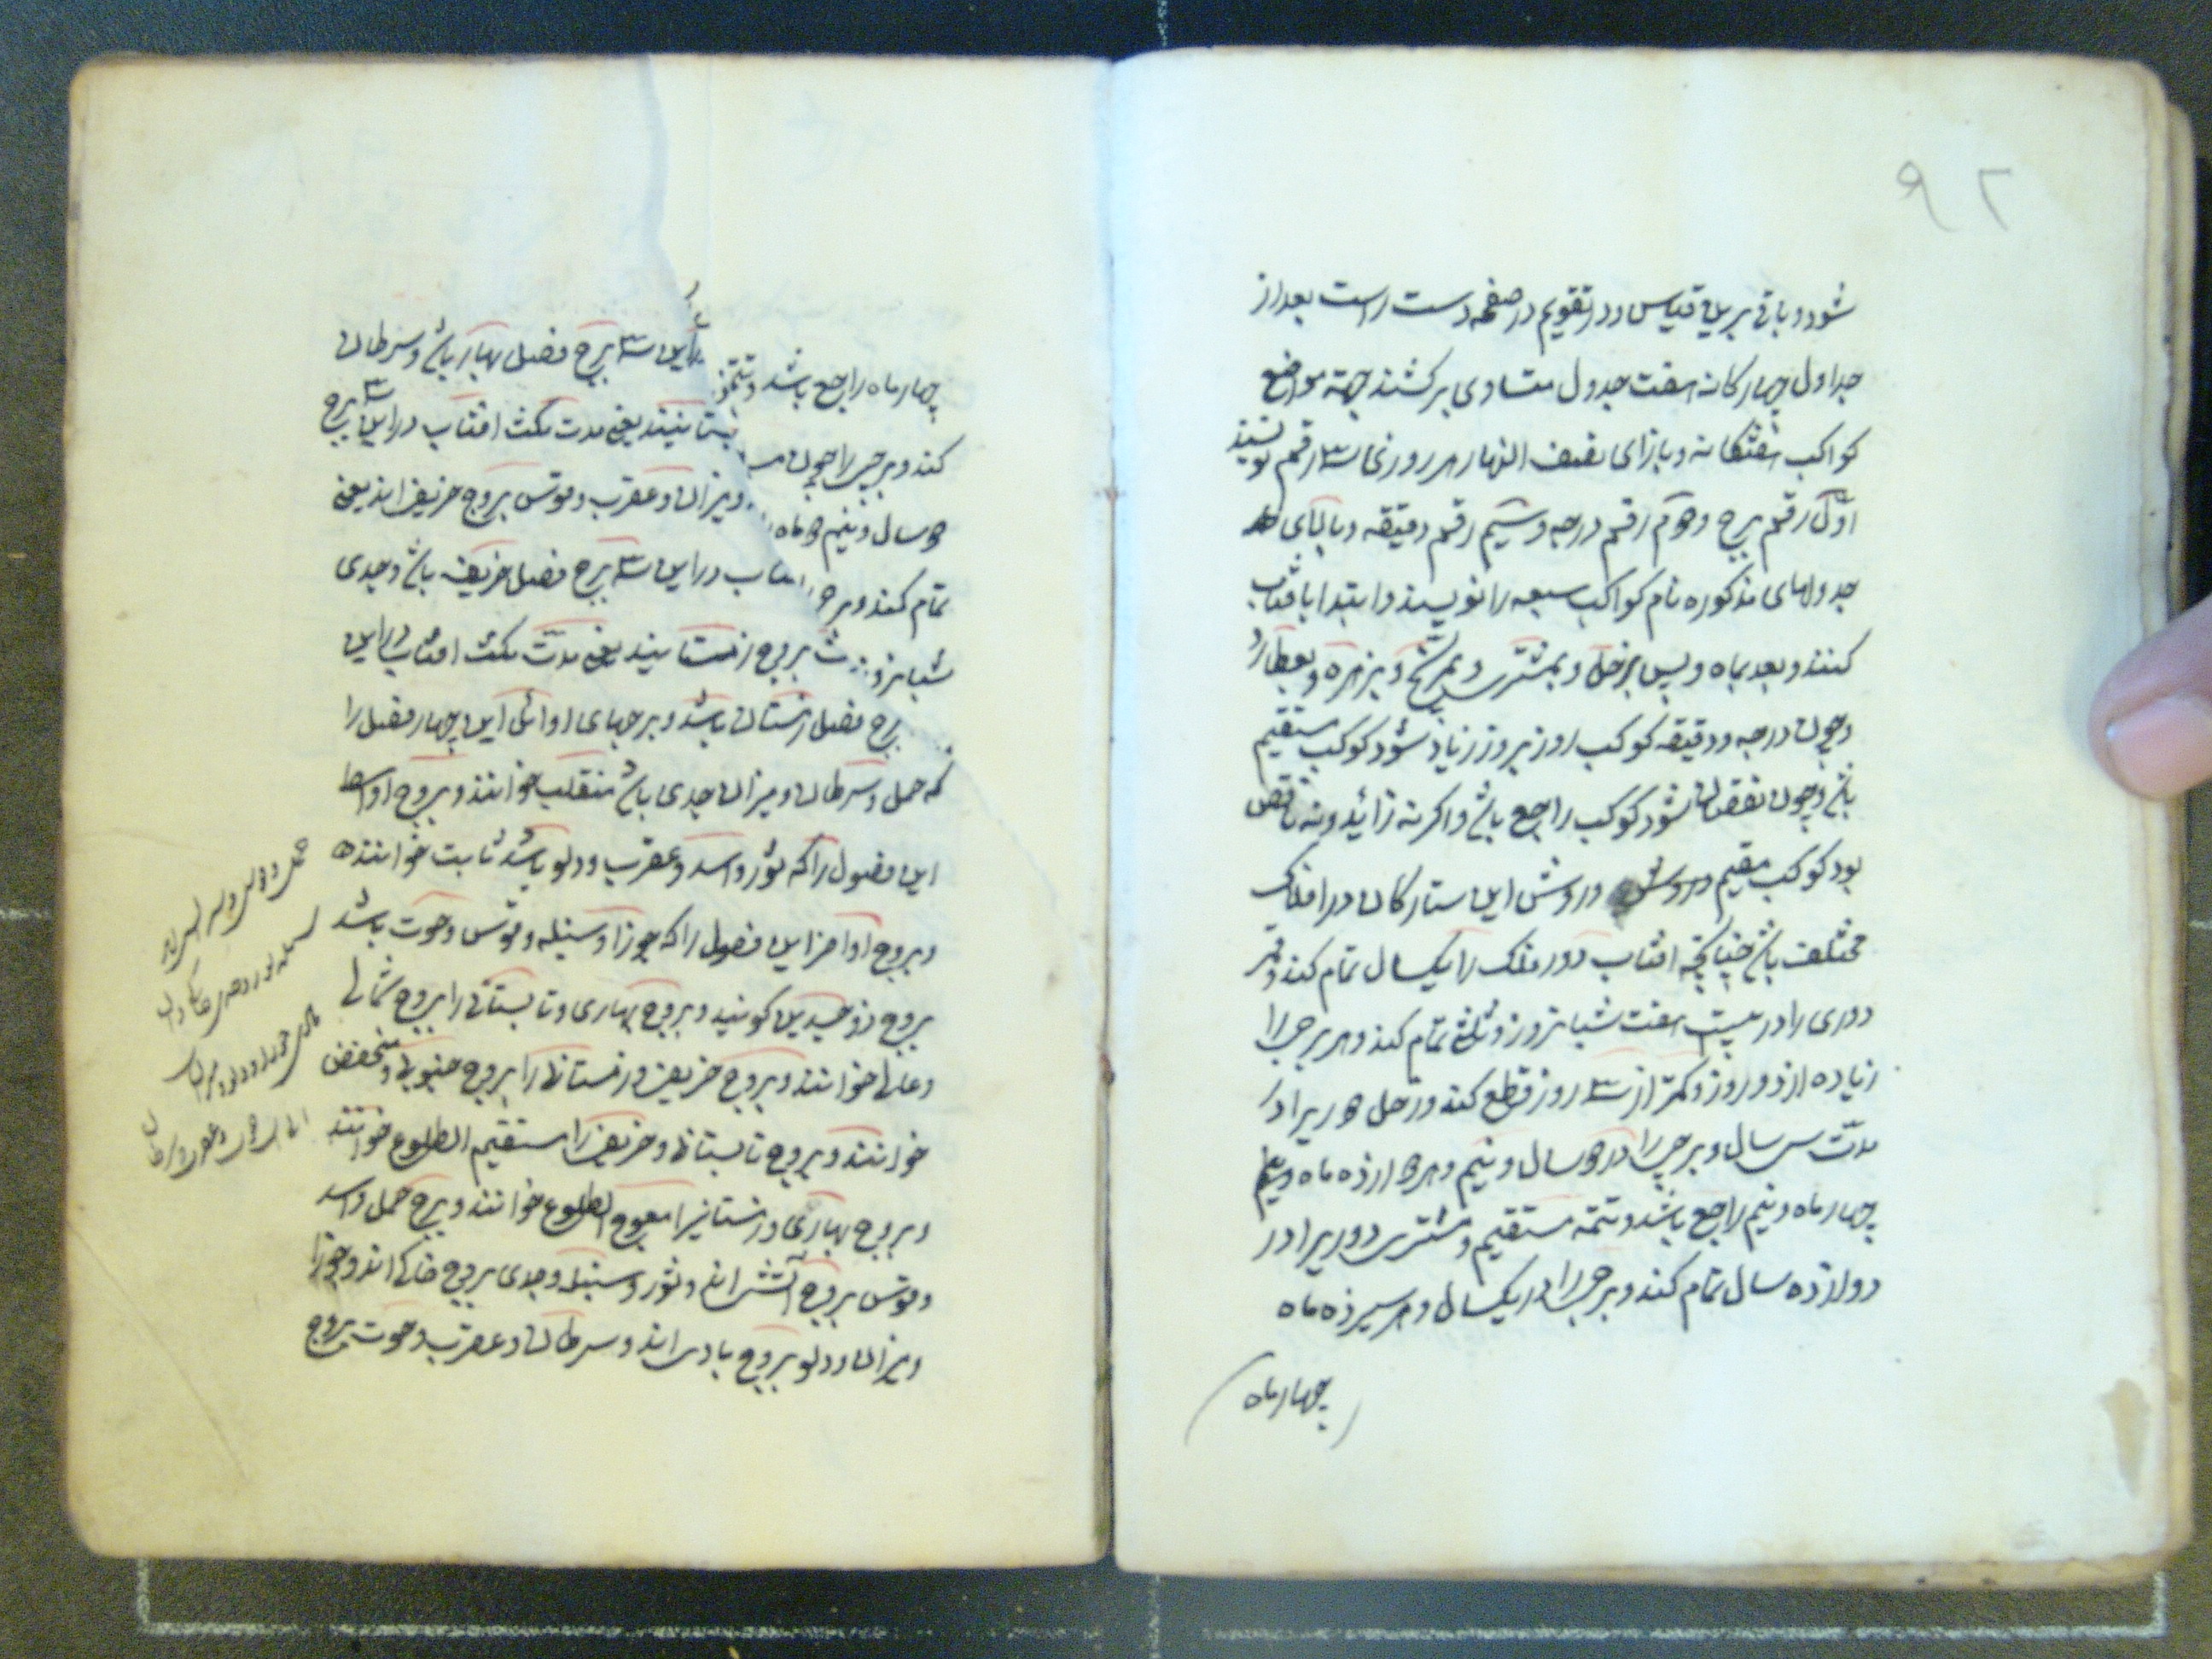 ۹۲
شود و باقی برین قیاس و در تقویم در صفحه دست راست بعد از
جداول چهارکانه هفت جدول متساوی برکشند جهة مواضع
کواکب هفتکانه و بازای نصف النهار هر روزی سه رقم نویسند
اول رقم برج و دوم رقم درجه و سیم رقم دقیقه و بالای
جدولهای مذکوره نام کواکب سبعه را نویسند و ابتدا بافتاب
کنند و بعد بماه و پس بزحل و بمشتری و بمریخ و بزهره و بعطارد
و چون درجه و دقیقه کوکب روز بروز زیاد شود کوکب مستقیم
باشد و چون نقصان شود کوکب راجع باشد و اکر نه زائد و نه ناقص
بود کوکب مقیم و روش این ستارکان در افلاک
مختلف باشد چنانکه افتاب دور فلک را یکسال تمام کند و قمر
دوری را در بیست هفت شبانروز و ثلثی تمام کند و هر برجی را
زیاده از دو روز و کمتر از سه روز قطع کند و زحل دوریرا در
مدت سی سال و برجی را در دو سال و نیم و هر دوازده ماه و نیم
چهار ماه و نیم راجع باشد و تتمه مستقیم و مشتری دوریرا در
دوازده سال تمام کند و برجی را در یکسال و هر سیزده ماه
چهار ماه
چهار ماه راجع باشد و تتمه
کند و برجی را چون
دو سال و نیم دو ماه
تمام کند و برج
شبانروز
این سه برج فصل بهار باشد و سرطان
بستانیند یعنی مدت مکث افتاب در این سه برج
و میزان و عقرب و قوس بروج خریفی اند یعنی
در این سه برج فصل خریف باشد و جدی
بروج زمستانیند یعنی مدت مکث افتاب در این
برج فصل زمستان باشد و برجهای اوائل این چهار فصل را
که حمل و سرطان و میزان جدی باشد منقلب خوانند و بروج اواسط
این فصول را که ثور و اسد و عقرب و دلو باشد ثابت خوانند
و بروج آواخر این فصول را که جوزا و سنبله و قوس و حوت باشد
بروج ذو جسدین کویند و بروج بهاری و تابستانی را بروج شمالی
و عالی خوانند و بروج خریفی و زمستانی را بروج جنوبی و منخفض
خوانند و بروج تابستانی و خریفی را مستقیم الطلوع خوانند
و بروج بهاری و زمستانیرا معوج الطلوع خوانند و برج حمل و اسد
و قوس بروج آتشی اند و ثور و سنبله و جدی بروج خاکی اند و جوزا
و میزان و دلو بروج بادی اند و سرطان و عقرب و حوت بروج